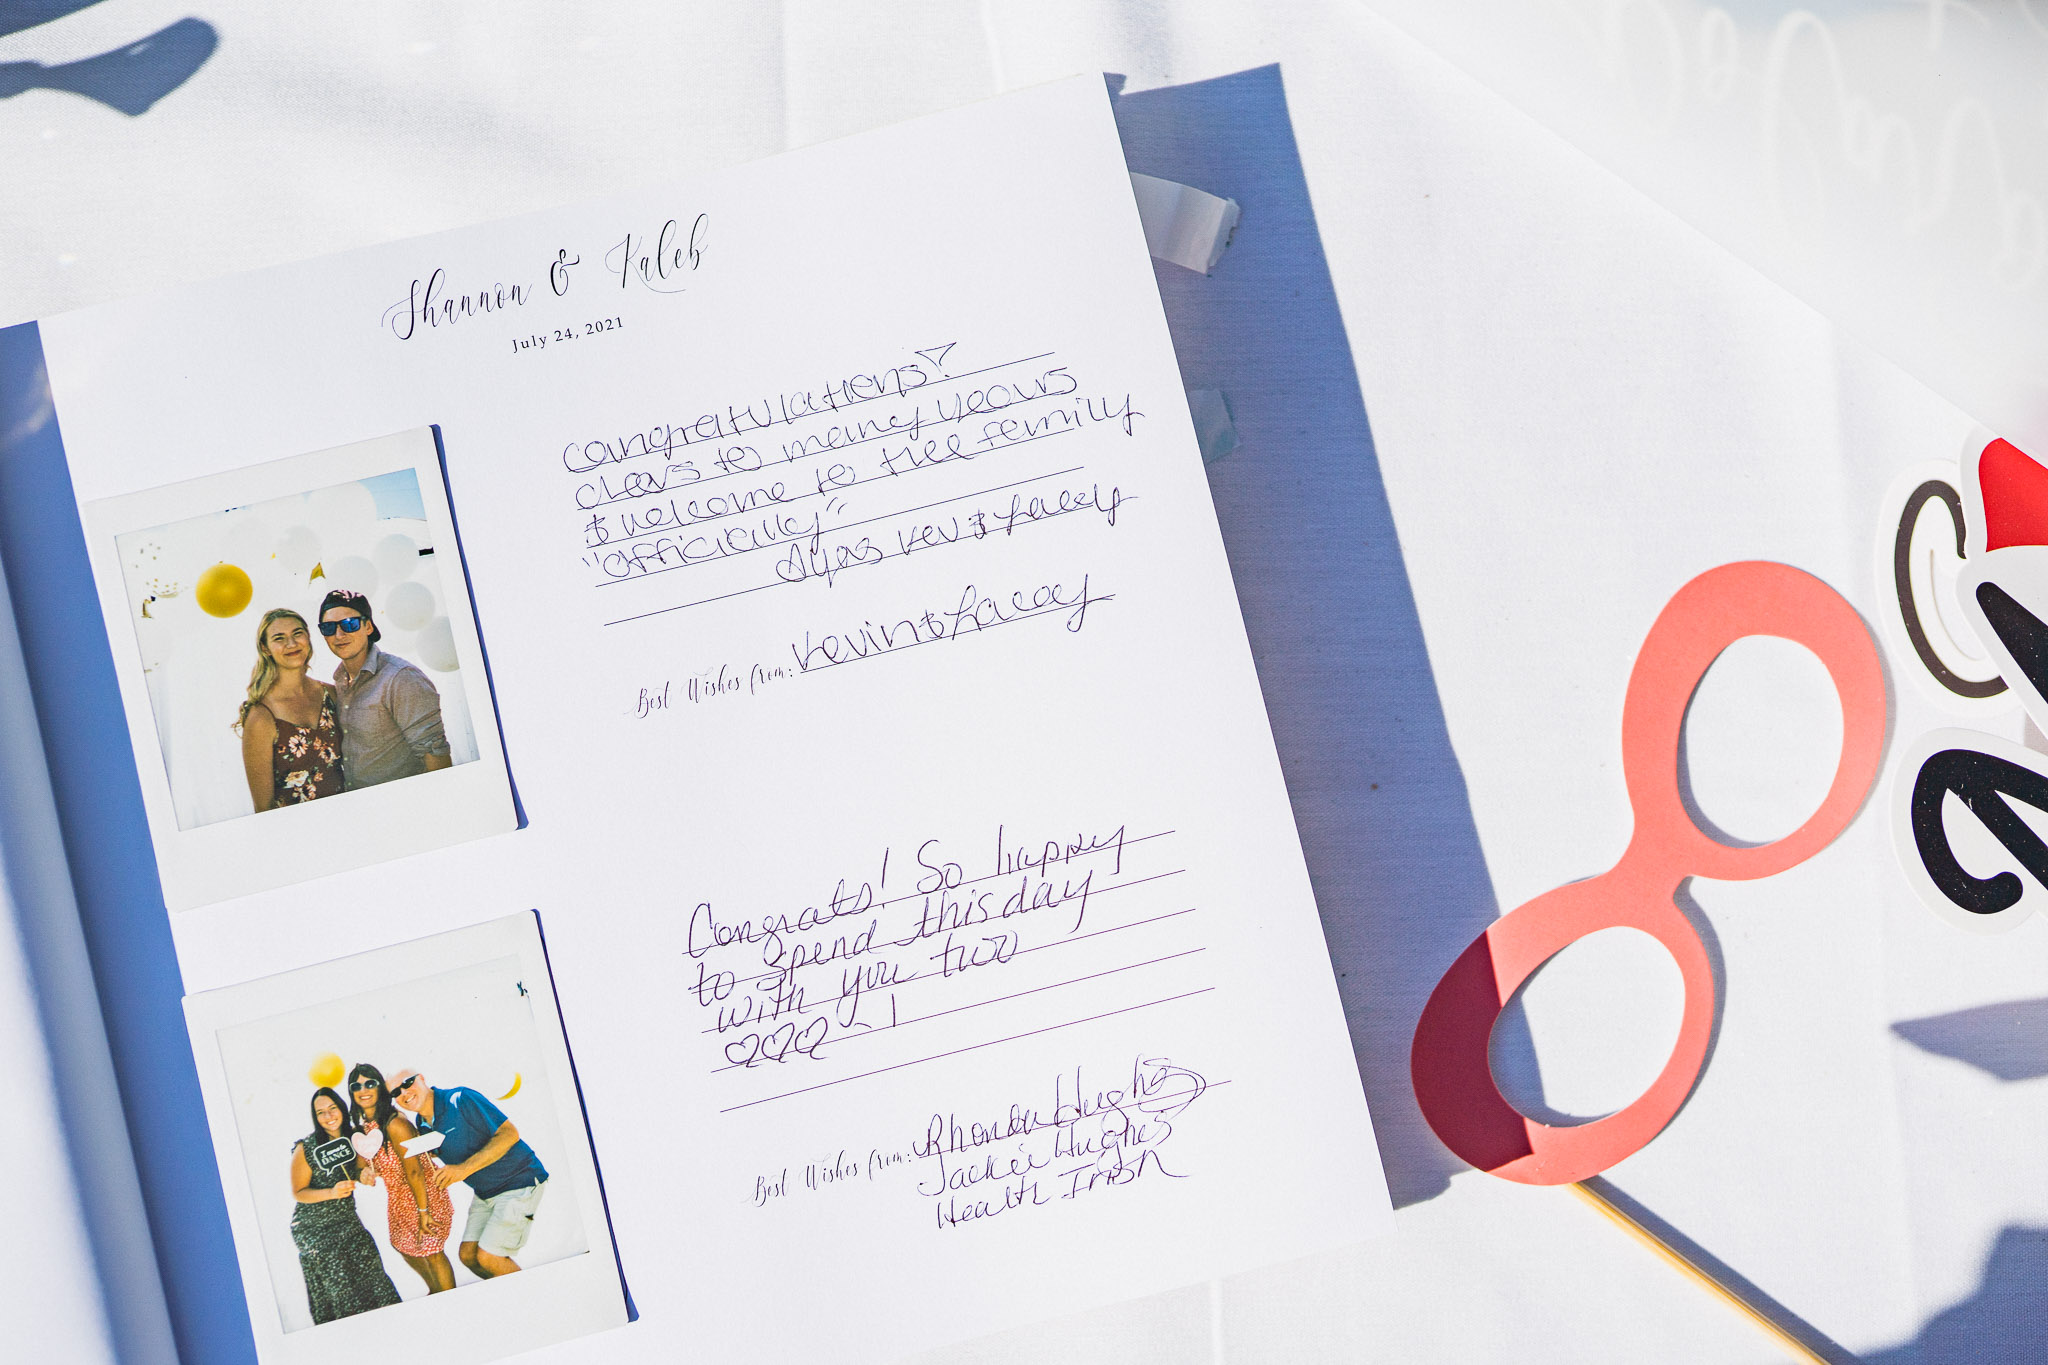 Shannon & Kaleb
July 24, 2021
congratulations!
cheers to many years
& welcome to the family
"officially"
Kev & Lacey
Best Wishes from: Kevin & Lacey
I
DANCE
Congrats! So happy
to spend this day
with you two
♡♡♡ - !
Best Wishes from: Rhonda Hughes
Jackie Hughes
Heath Irish